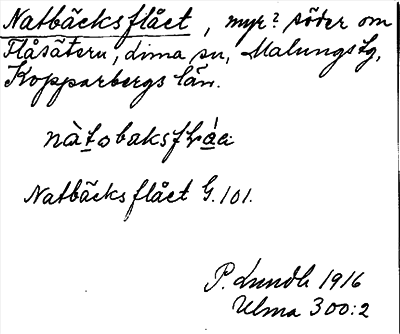 Natbäcksflået, myr? söder om
Flåsätern, Lima sn, Malungs tg,
Kopparbergs län.
Natbäcksflået G. 101.
P. Lundh 1916
Ulma 300:2